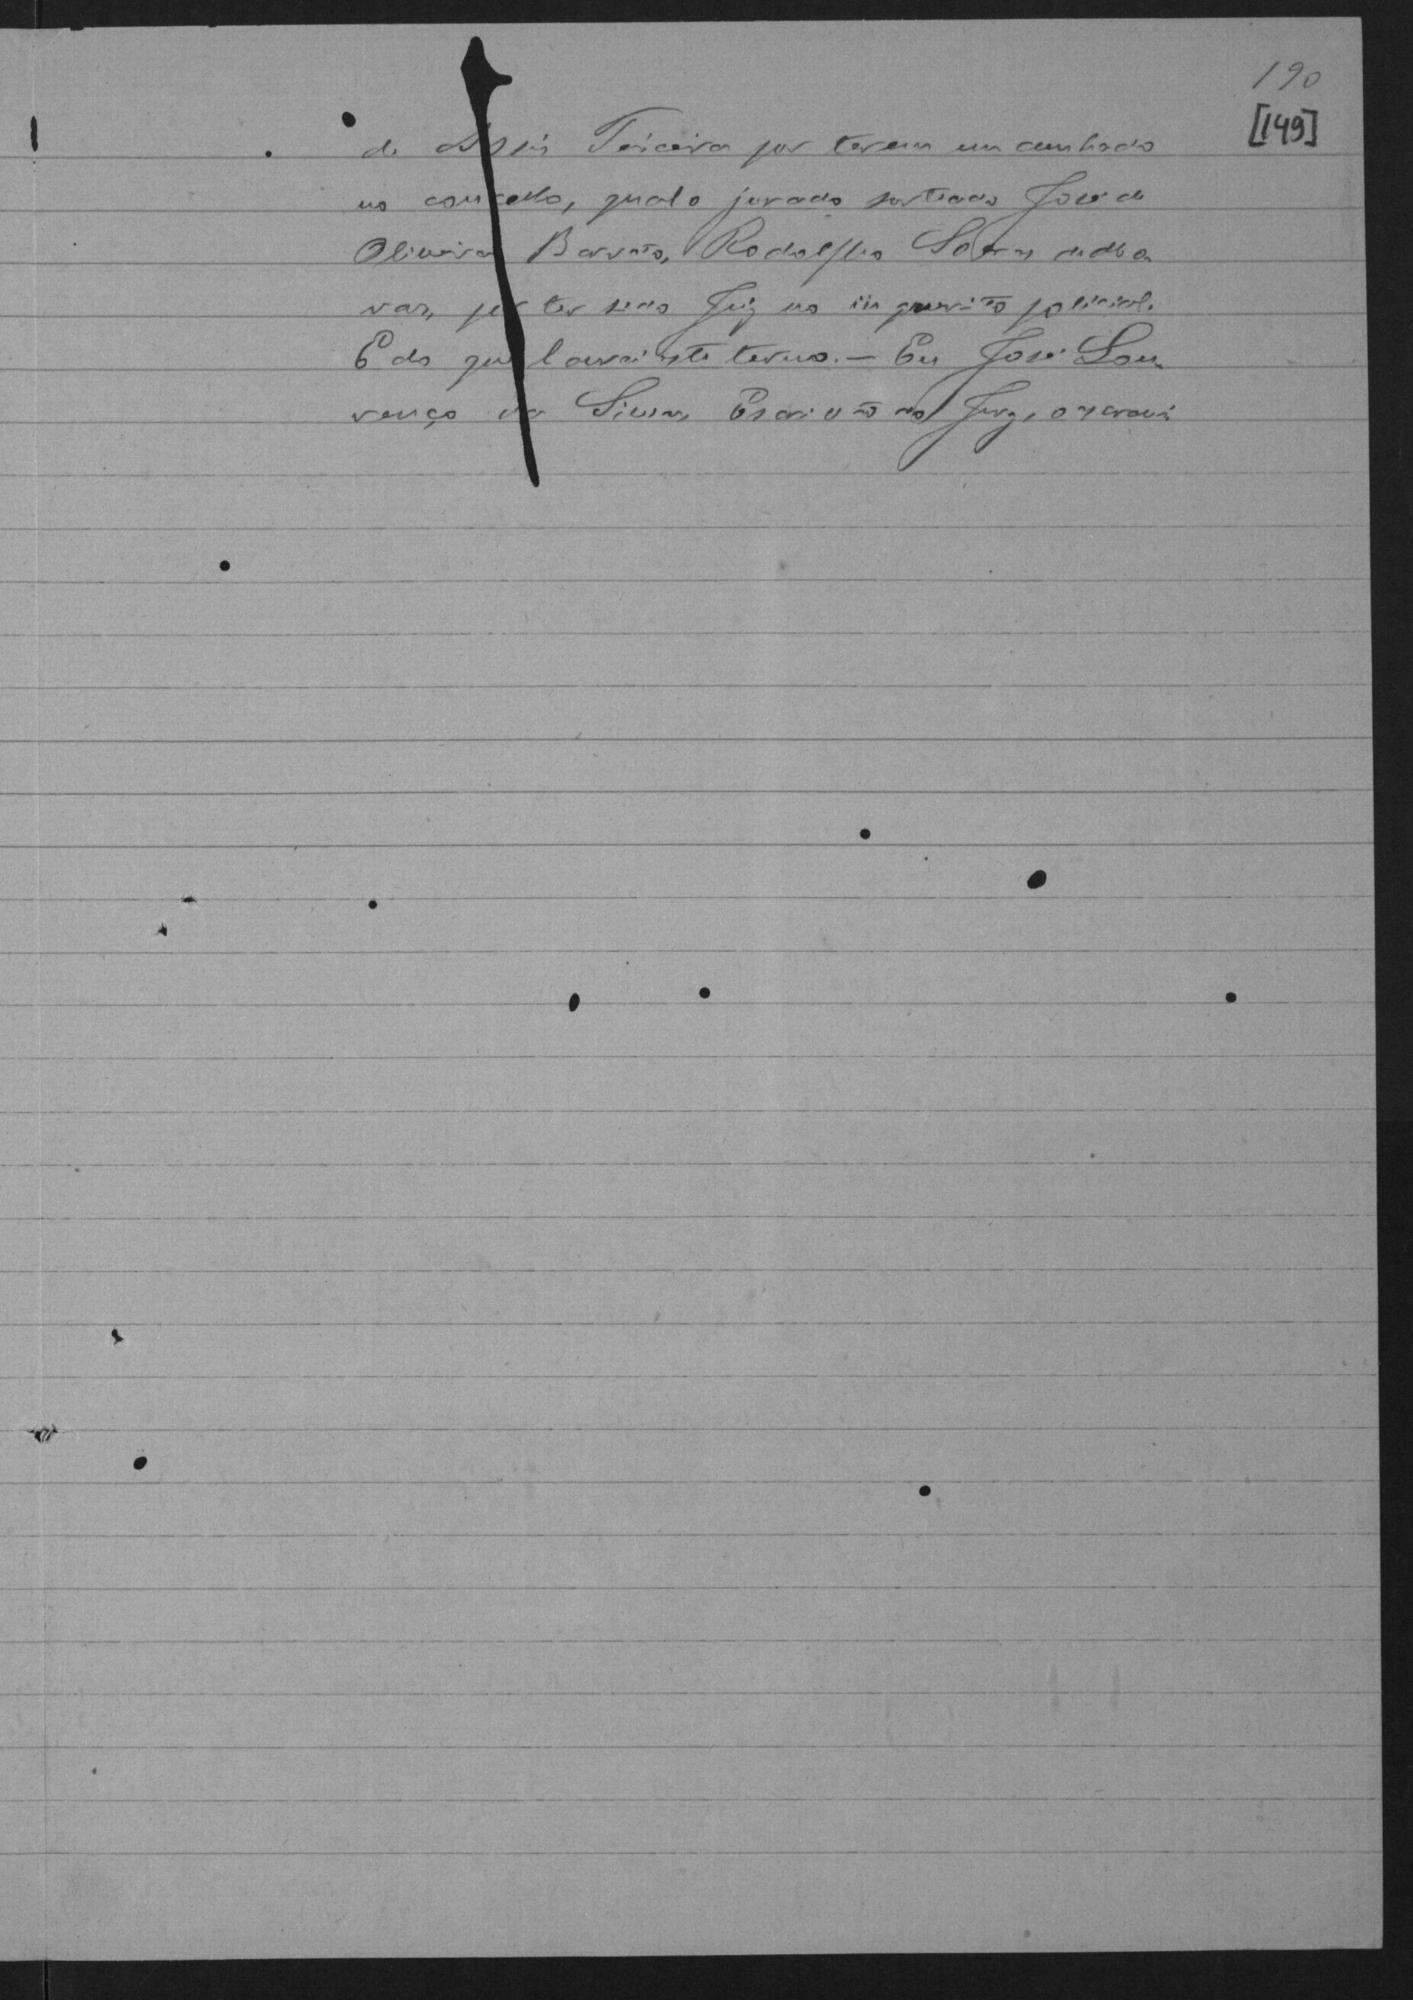 190
[149]
de Assis Teixeira por terem um cunhado
no conselho, qual o jurado sorteado José de
Oliveira Barreto, Rodolpho
por ter sido Juiz no inquerito policial.
E do que lavrei este termo. — Eu José Lou
renço da Silva, Escrivão do Jury, o escrevi